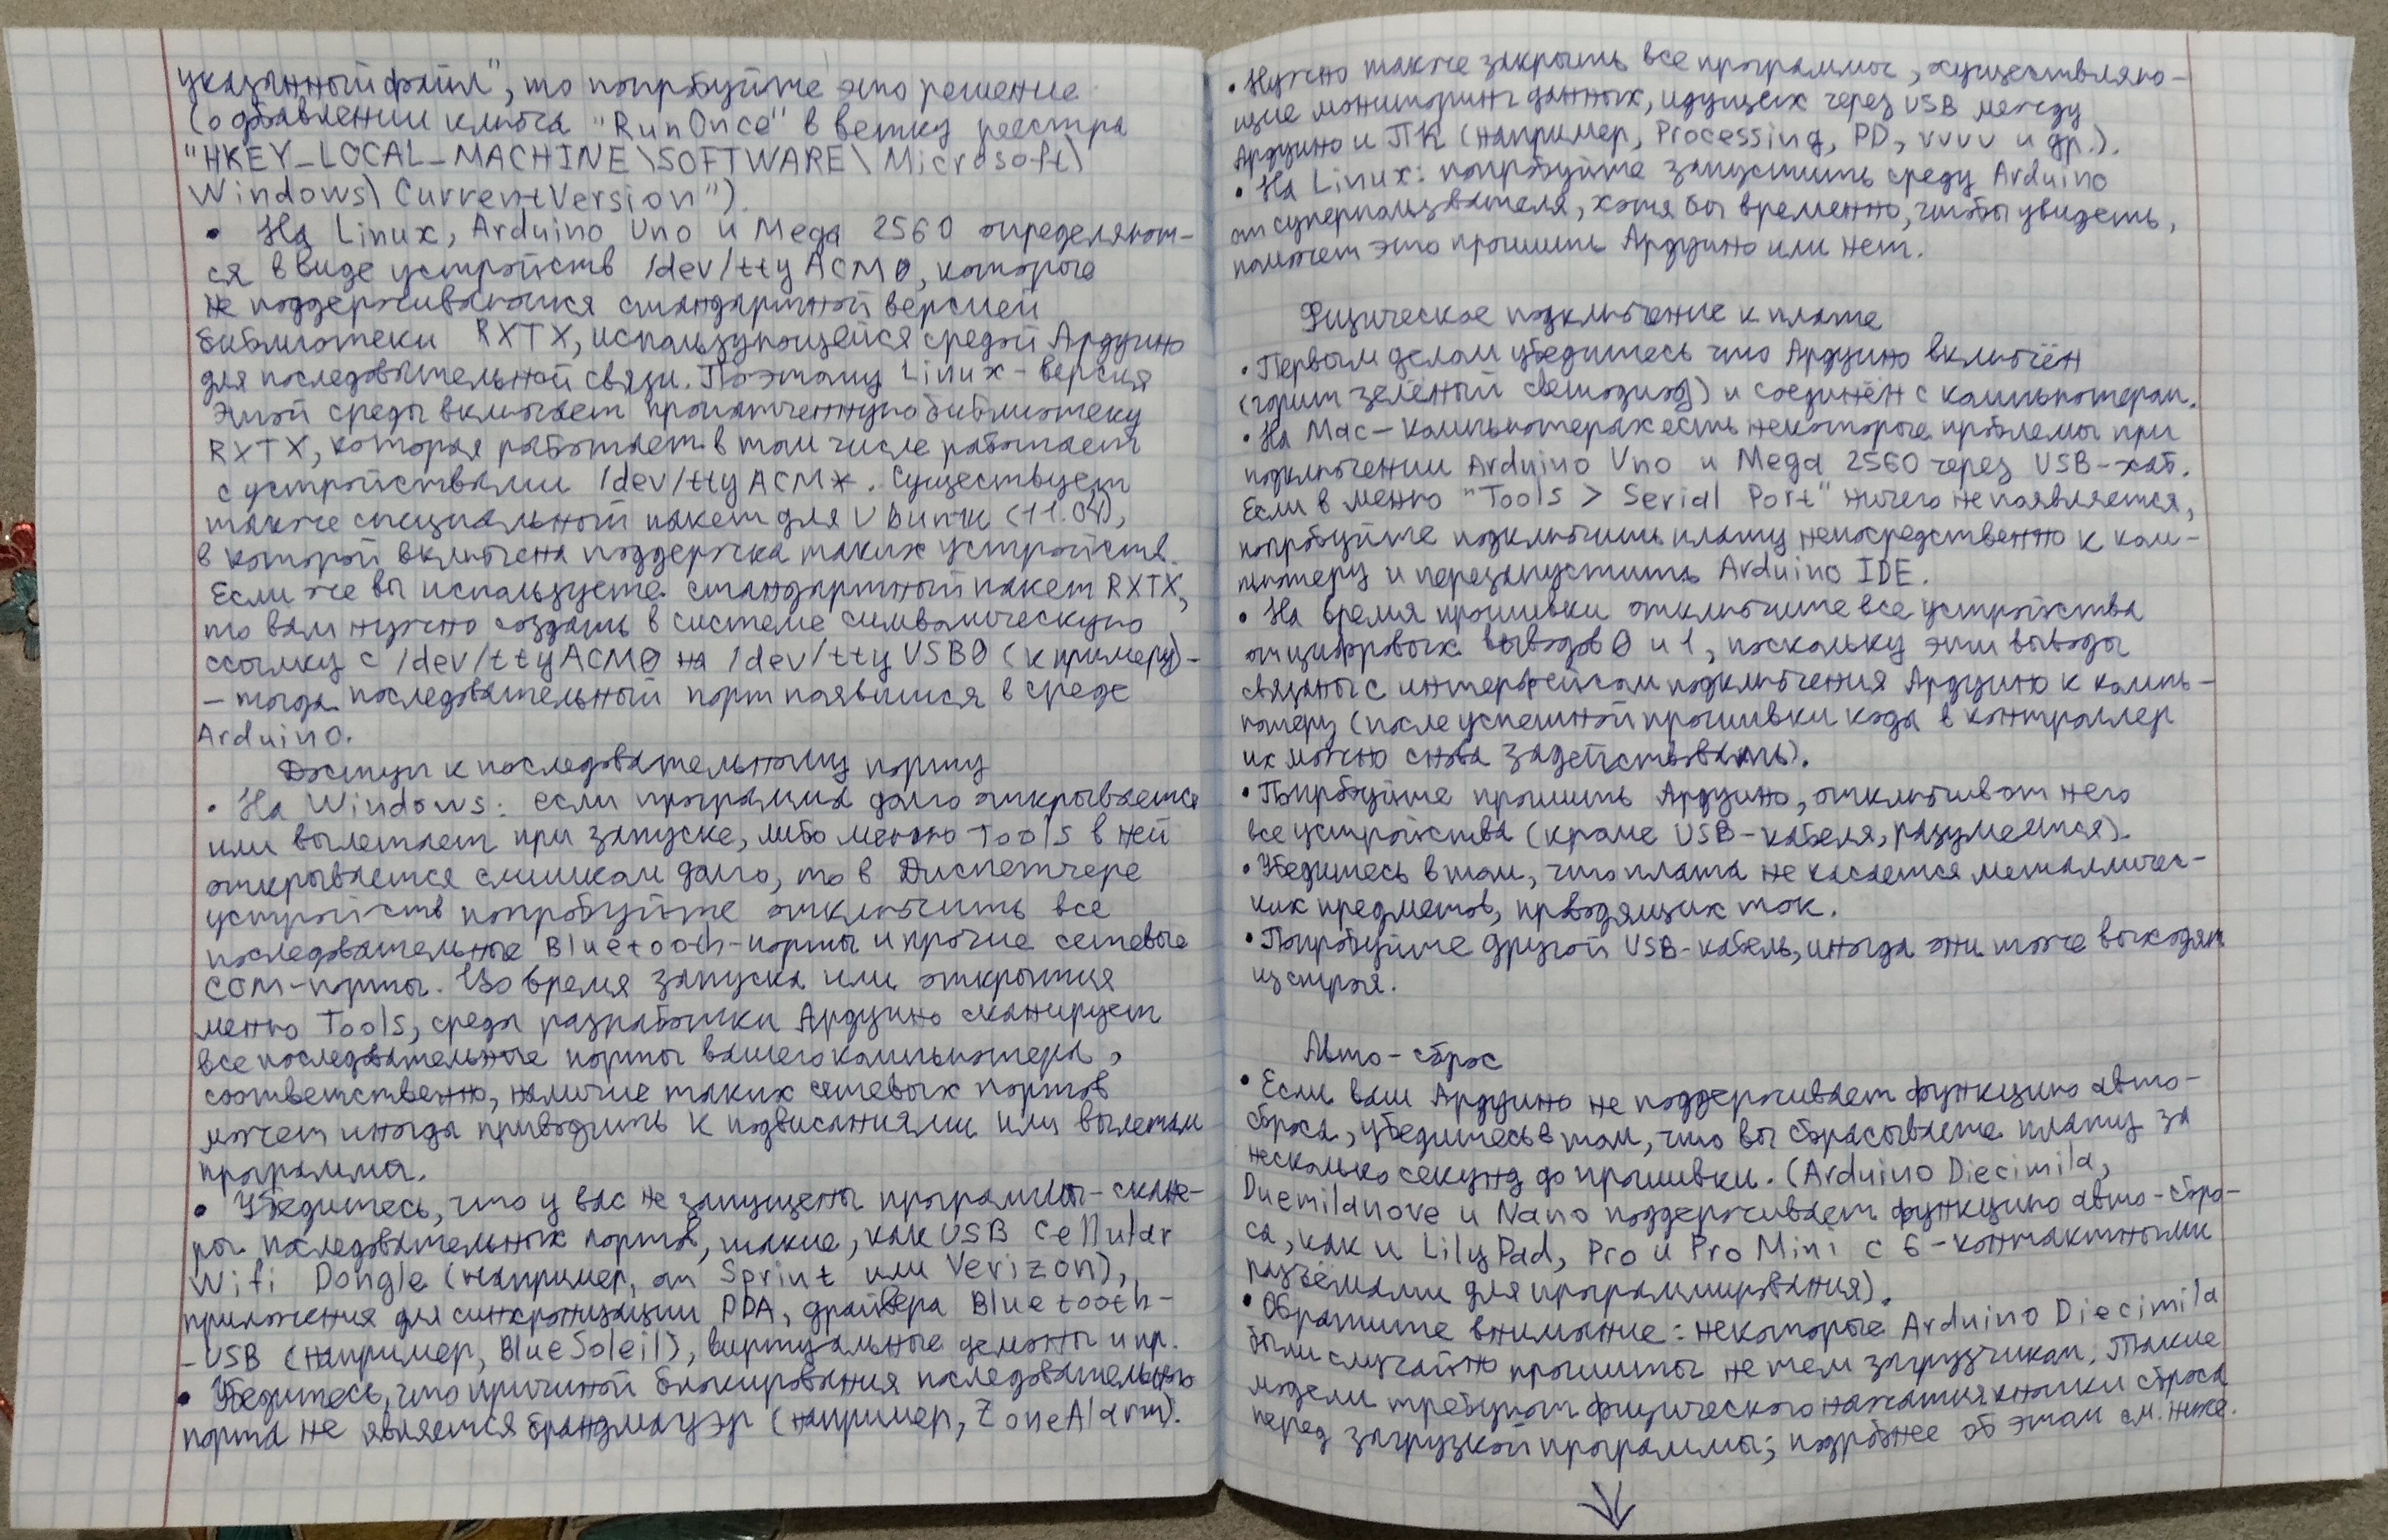 указанный файл", то попробуйте это решение
(о добавлении ключа "RunOnce" в ветку реестра
"HKEY_LOCAL_MACHINE\SOFTWARE\Microsoft\
Windows\CurrentVersion").
• На Linux, Arduino Uno и Mega 2560 определяют-
ся в виде устройств /dev/ttyACM0, которые
не поддерживаются стандартной версией
библиотеки RXTX, использующейся средой Ардуино
для последовательной связи. Поэтому Linux-версия
этой среды включает пропатченную библиотеку
RXTX, которая работает в том числе работает
с устройствами /dev/ttyACM*. Существует
также специальный пакет для Ubuntu (11.04),
в которой включена поддержка таких устройств.
Если же вы используете стандартный пакет RXTX,
то вам нужно создать в системе символическую
ссылку с /dev/ttyACM0 на /dev/ttyUSB0 (к примеру) -
- тогда последовательный порт появится в среде
Arduino.
Доступ к последовательному порту
• На Windows: если программа долго открывается
или вылетает при запуске, либо меню Tools в ней
открывается слишком долго, то в Диспетчере
устройств попробуйте отключить все
последовательные Bluetooth-порты и прочие сетевые
COM-порты. Во время запуска или открытия
меню Tools, среда разработки Ардуино сканирует
все последовательные порты вашего компьютера,
соответственно, наличие таких сетевых портов
может иногда приводить к подвисаниями или вылетам
программы.
• Убедитесь, что у вас не запущены программы-скане-
ры последовательных портов, такие, как USB Cellular
Wifi Dongle (например, от Sprint или Verizon),
приложения для синхронизации PDA, драйвера Bluetooth-
-USB (например, BlueSoleil), виртуальные демоны и пр.
• Убедитесь, что причиной блокирования последовательного
порта не является брандмауэр (например, ZoneAlarm).
• Нужно также закрыть все программы, осуществляю-
щие мониторинг данных, идущих через USB между
Ардуино и ПК (например, Processing, PD, vvvv и др.).
• На Linux: попробуйте запустить среду Arduino
от суперпользователя, хотя бы временно, чтобы увидеть,
поможет это прошить Ардуино или нет.
Физическое подключение к плате
• Первым делом убедитесь что Ардуино включён
(горит зелёный светодиод) и соединён с компьютером.
• На Mac-компьютерах есть некоторые проблемы при
подключении Arduino Uno и Mega 2560 через USB-хаб.
Если в меню "Tools > Serial Port" ничего не появляется,
попробуйте подключить плату непосредственно к ком-
пютеру и перезапустить Arduino IDE.
• На время прошивки отключите все устройства
от цифровых выводов 0 и 1, поскольку эти выводы
связаны с интерфейсом подключения Ардуино к компь-
ютеру (после успешной прошивки кода в контроллер
их можно снова задействовать).
• Попробуйте прошить Ардуино, отключив от него
все устройства (кроме USB-кабеля, разумеется).
• Убедитесь в том, что плата не касается металличес-
ких предметов, проводящих ток.
• Попробуйте другой USB-кабель, иногда они тоже выходят
из строя.
Авто-сброс
• Если ваш Ардуино не поддерживает функцию авто-
сброса, убедитесь в том, что вы сбрасываете плату за
несколько секунд до прошивки. (Arduino Diecimila,
Duemilanove и Nano поддерживает функцию авто-сбро-
са, как и LilyPad, Pro и Pro Mini с 6-контактными
разъёмами для программирования).
• Обратите внимание: некоторые Arduino Diecimila
были случайно прошиты не тем загрузчиком. Такие
модели требуют физического нажатия кнопки сброса
перед загрузкой программы; подробнее об этом см. ниже.